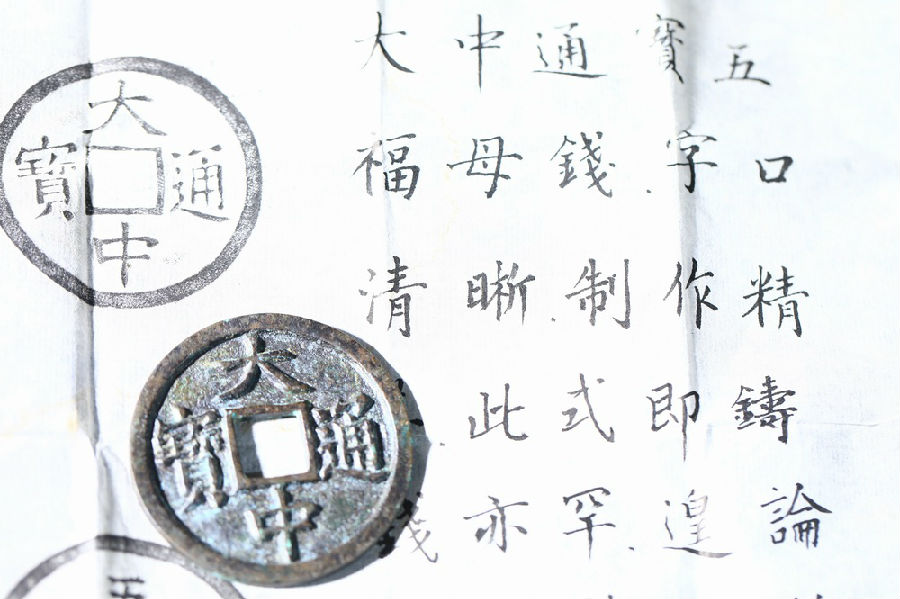 大中通寶
大中通寶五
福母錢.字口
清晰.制作精
.此式即鑄
錢亦罕.遑論
大中通寶
五